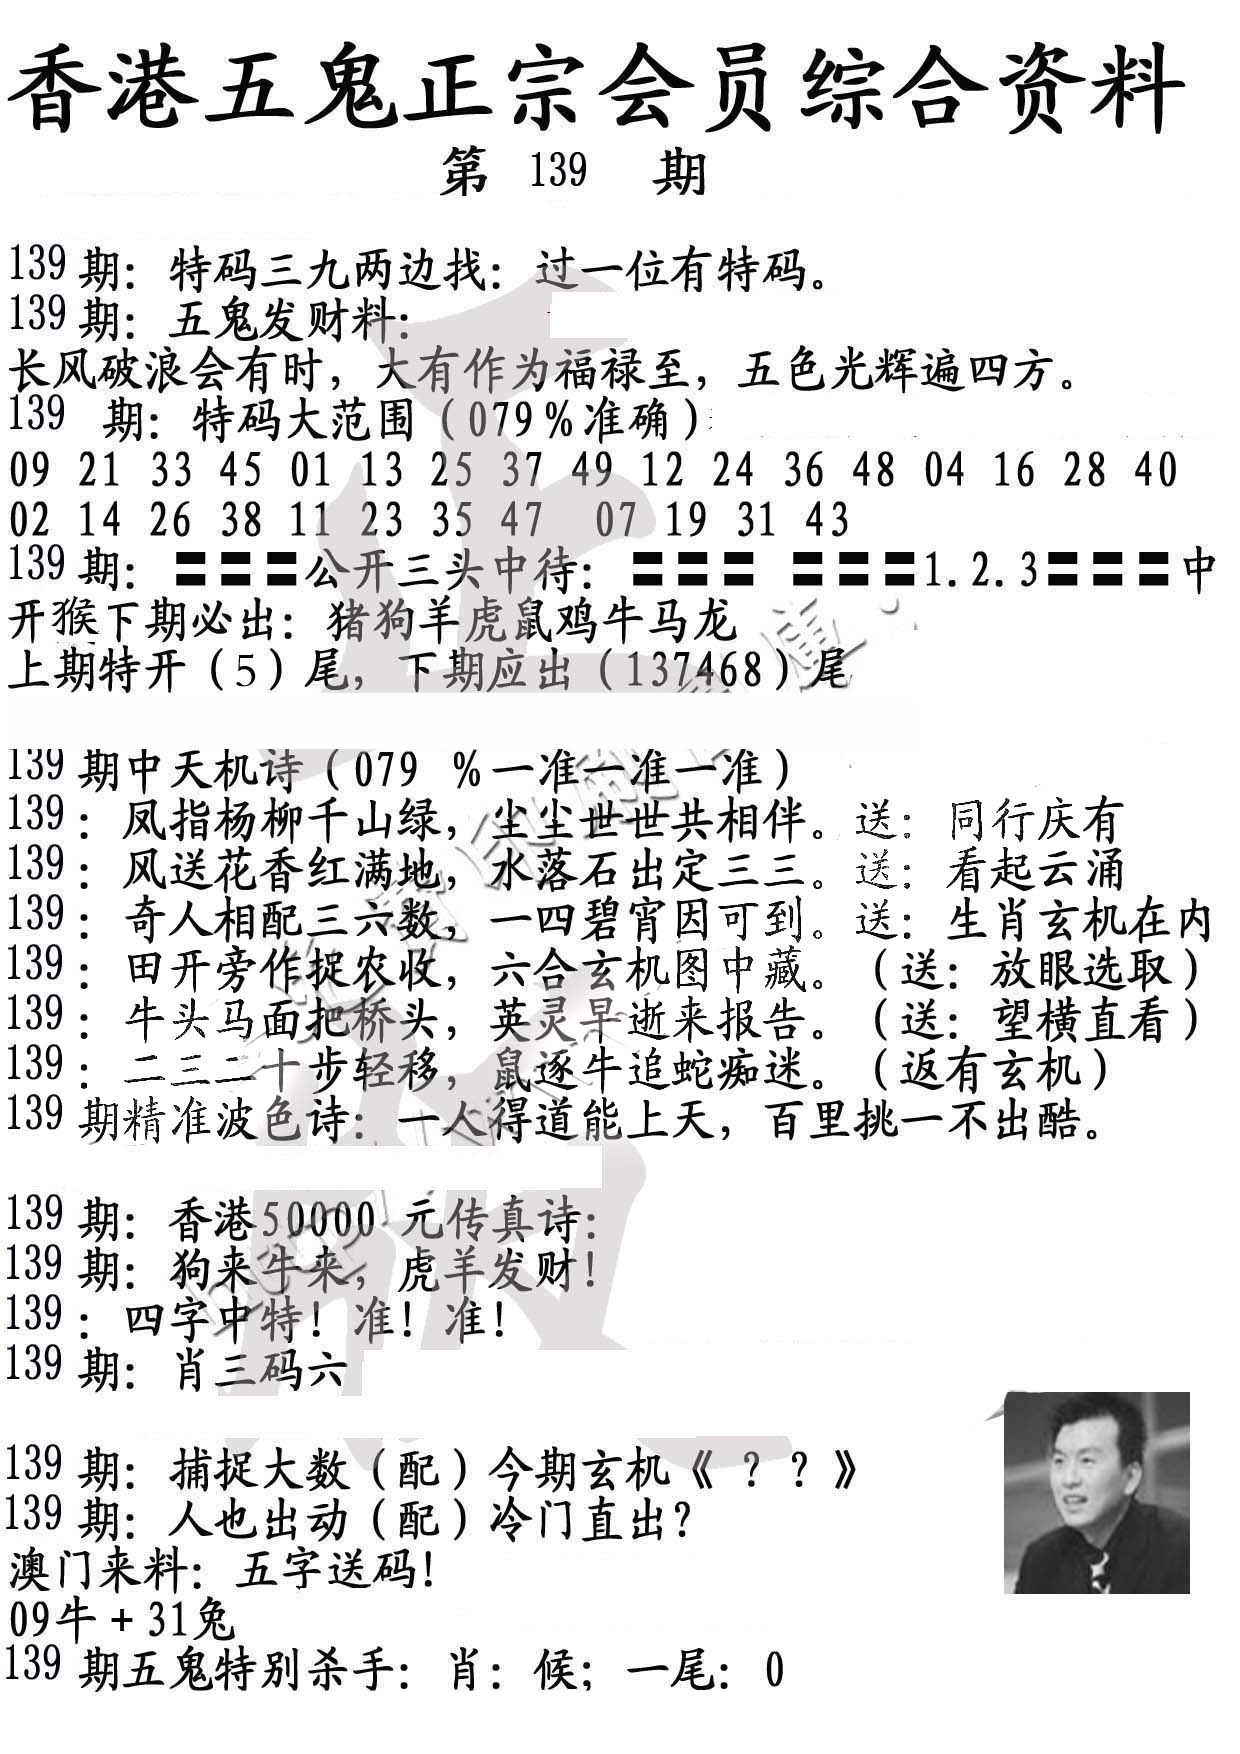 香港五鬼正宗会员综合资料
第 139 期
139 期：特码三九两边找：过一位有特码。
139 期：五鬼发财料：
长风破浪会有时，大有作为福禄至，五色光辉遍四方。
139 期：特码大范围（079％准确）
09 21 33 45 01 13 25 37 49 12 24 36 48 04 16 28 40
02 14 26 38 11 23 35 47 07 19 31 43
139 期：〓〓〓公开三头中待：〓〓〓 〓〓〓1.2.3〓〓〓中
开猴下期必出：猪狗羊虎鼠鸡牛马龙
上期特开（5）尾，下期应出（137468）尾
139 期中天机诗（079 ％一准一准一准）
139：凤指杨柳千山绿，尘尘世世共相伴。送：同行庆有
139：风送花香红满地，水落石出定三三。送：看起云涌
139：奇人相配三六数，一四碧宵因可到。送：生肖玄机在内
139：田开旁作捉农收，六合玄机图中藏。（送：放眼选取）
139：牛头马面把桥头，英灵早逝来报告。（送：望横直看）
139：二三二十步轻移，鼠逐牛追蛇痴迷。（返有玄机）
139 期精准波色诗：一人得道能上天，百里挑一不出酷。
139 期：香港50000 元传真诗：
139 期：狗来牛来，虎羊发财！
139：四字中特！准！准！
139 期：肖三码六
139 期：捕捉大数（配）今期玄机《？？》
139 期：人也出动（配）冷门直出？
澳门来料：五字送码！
09牛＋31兔
139 期五鬼特别杀手：肖：候；一尾：0